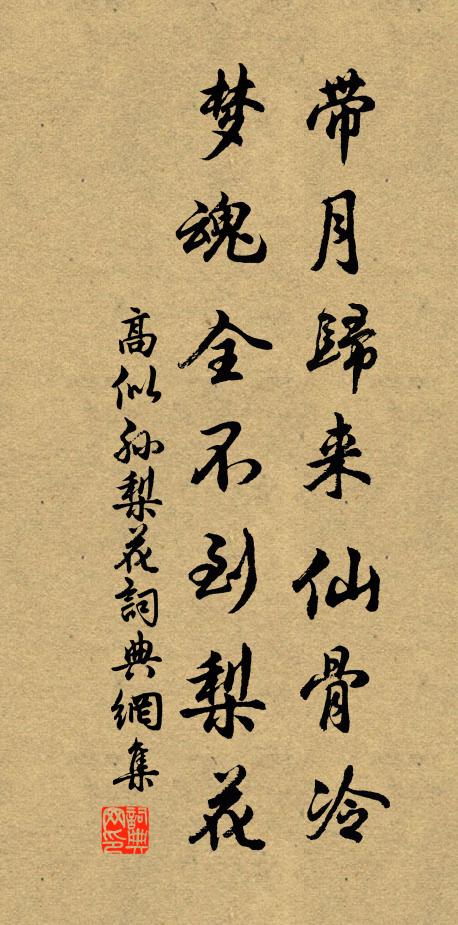 带月歸来仙骨冷
梦魂全不到梨花
高似孙梨花詞典網集
詞典网印